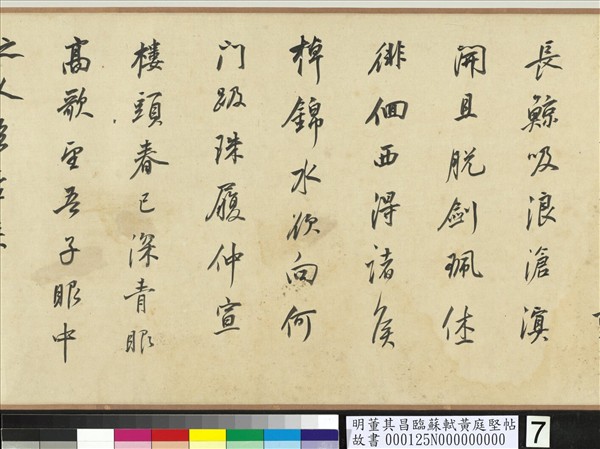 長鯨吸浪滄溟
開且脱劍珮休
徘佪西得諸侯
棹錦水欲向何
門趿珠履仲宣
樓頭春已深青眼
高歌望吾子眼中
之人吾老矣
明董其昌臨蘇軾黃庭堅帖
故書 000125N000000000
7